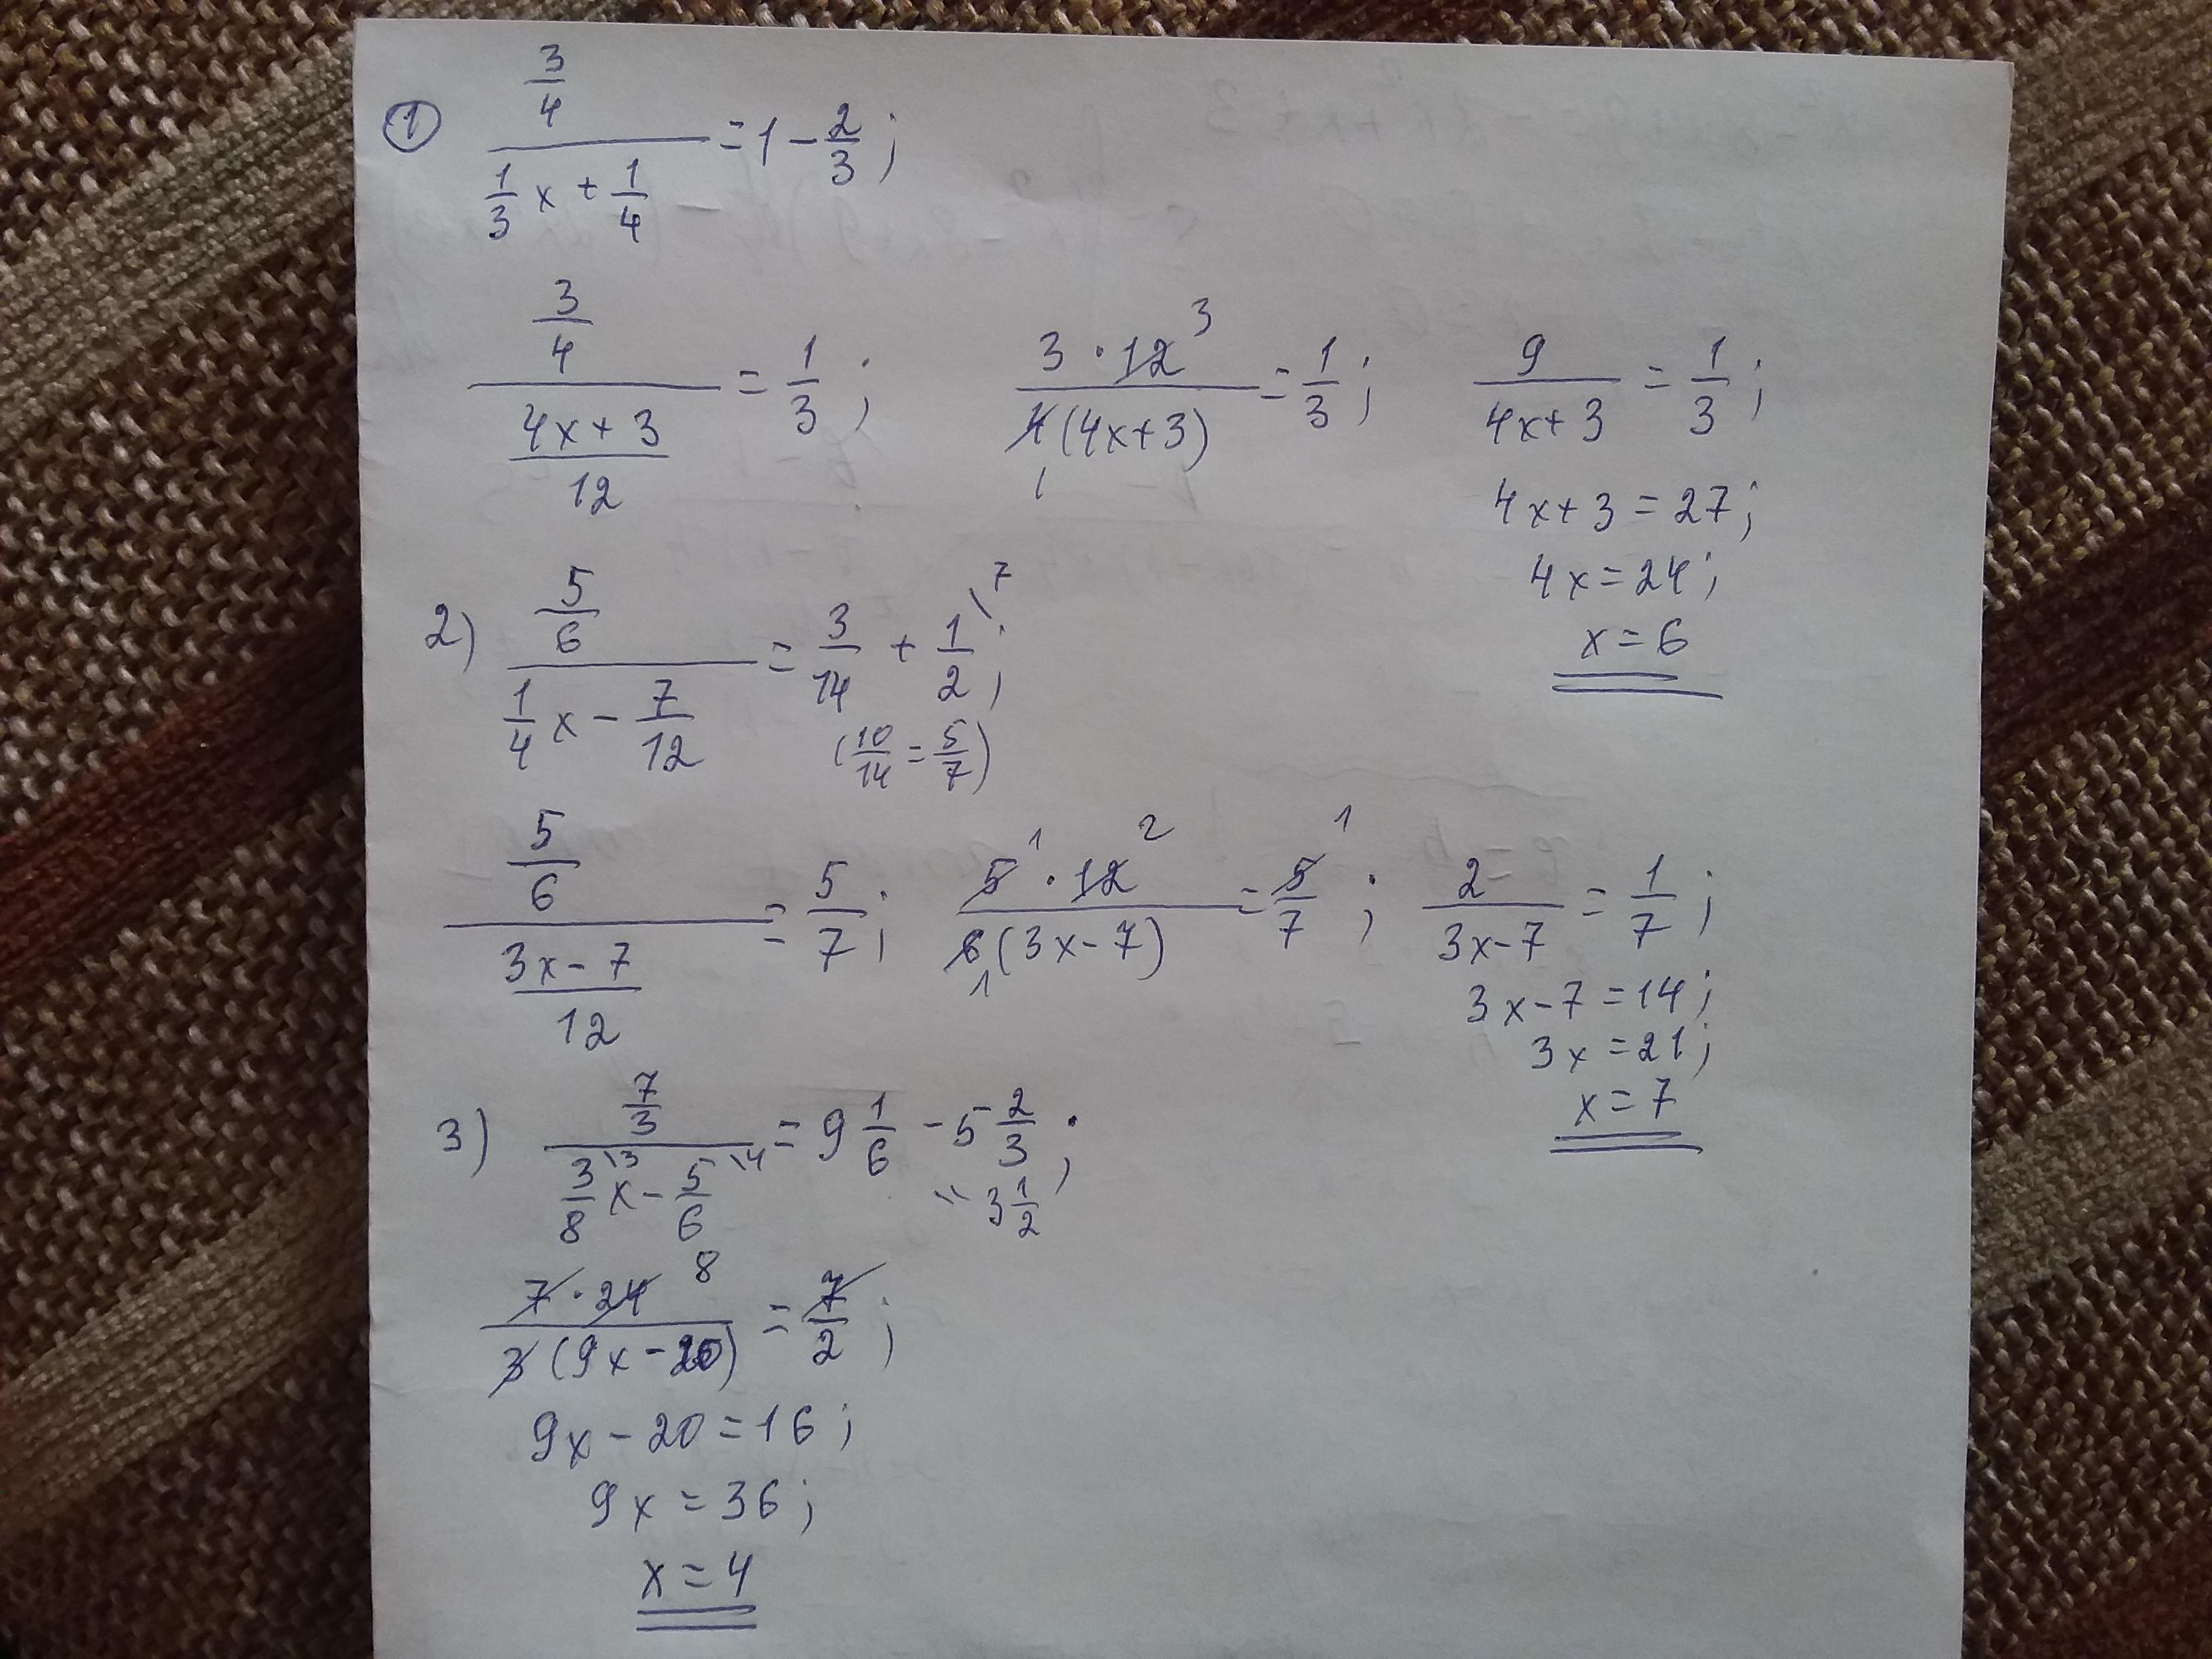 ① (3/4)/(1/3 x + 1/4) = 1 - 2/3;
(3/4)/((4x+3)/12) = 1/3; 3·12 ³/4 ₁(4x+3) = 1/3; 9/(4x+3) = 1/3;
4x+3 = 27;
4x = 24;
x = 6
2) (5/6)/(1/4 x - 7/12) = 3/14 + 1/2 \⁷;
(10/14 = 5/7)
(5/6)/((3x-7)/12) = 5/7; 5 ¹·12 ²/6 ₁(3x-7) = 5 ¹/7; 2/(3x-7) = 1/7;
3x-7 = 14;
3x = 21;
x = 7
3) (7/3)/(3/8 \³ x - 5/6 \⁴) = 9 1/6 - 5 2/3;
= 3 1/2
7·24 ⁸/3(9x-20) = 7/2;
9x - 20 = 16;
9x = 36;
x = 4